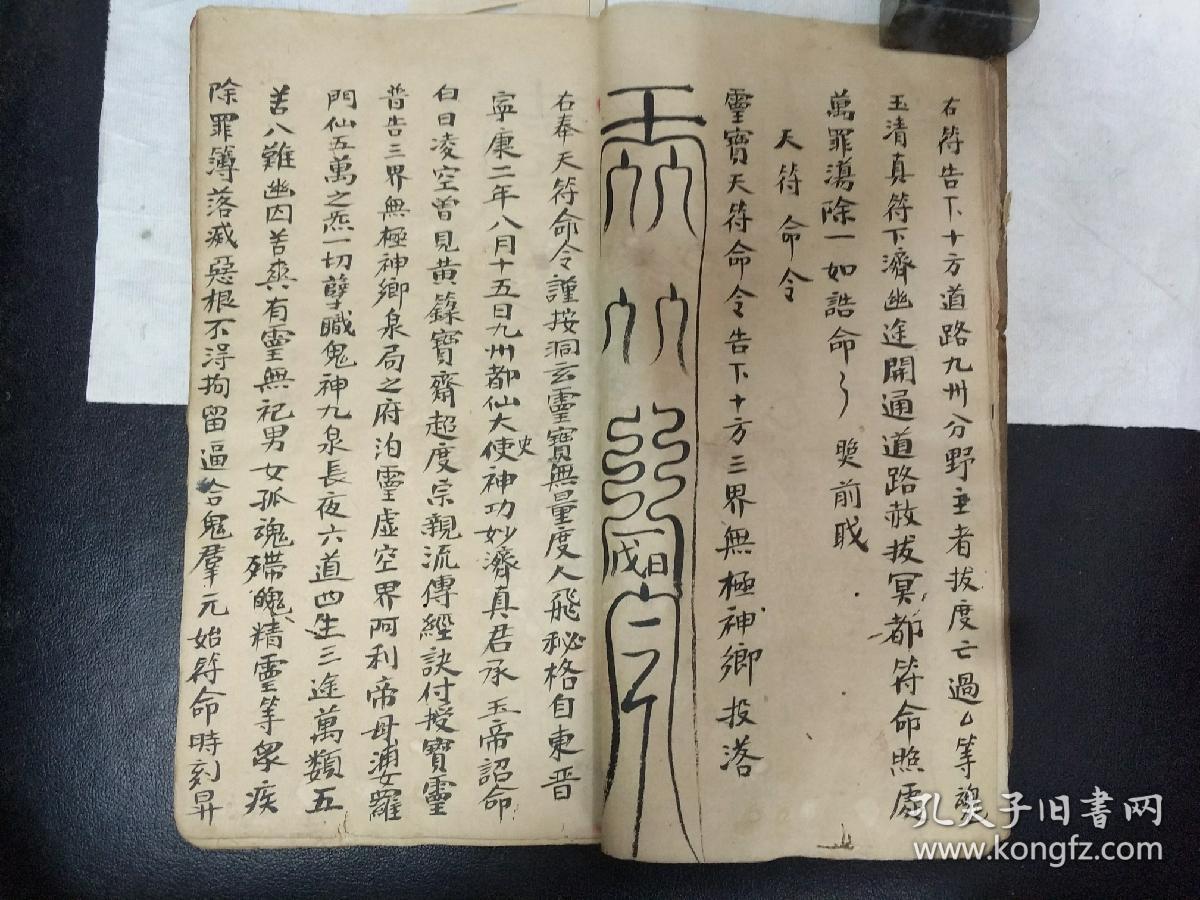 右符告下十方道路九州分野主者拔度亡過厶等魂
玉清真符下濟幽途開通道路赦拔冥都符命照處
萬罪蕩除一如誥命
前
天符命令
靈寶天符命令告下十方三界無極神鄉投落
右奉天符命令謹按洞玄靈寶無量度人飛秘格自東晉
寧康二年八月十五日九州都仙大使神功妙濟真君承玉帝詔命
史
白日凌空曾見黃籙寶齋超度宗親流傳經訣付授寶靈
普告三界無極神鄉泉局之府洎靈虛空界阿利帝母婆羅
門仙五萬之炁一切孽職鬼神九泉長夜六道四生三途萬類五
苦八難幽囚苦爽有靈無祀男女孤魂滯魄精靈等衆疾
除罪簿落滅惡根不淂拘留逼合鬼羣元始符命時刻昇
孔夫子旧书网
www.kongfz.com